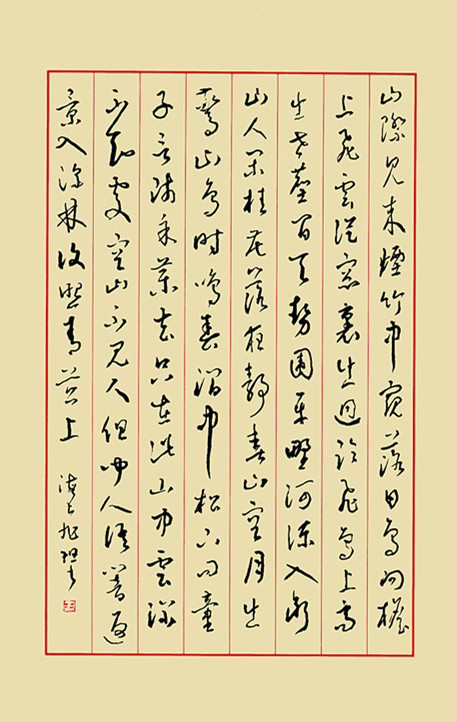 山際見來煙竹中窺落日鳥向檐
上飛雲從窗裏出迥臨飛鳥上高
出世塵間天勢圍平野河流入斷
山人閒桂花落夜靜春山空月出
驚山鳥時鳴春澗中松下問童
子言師采藥去只在此山中雲深
不知處空山不見人但聞人語響返
景入深林復照青苔上